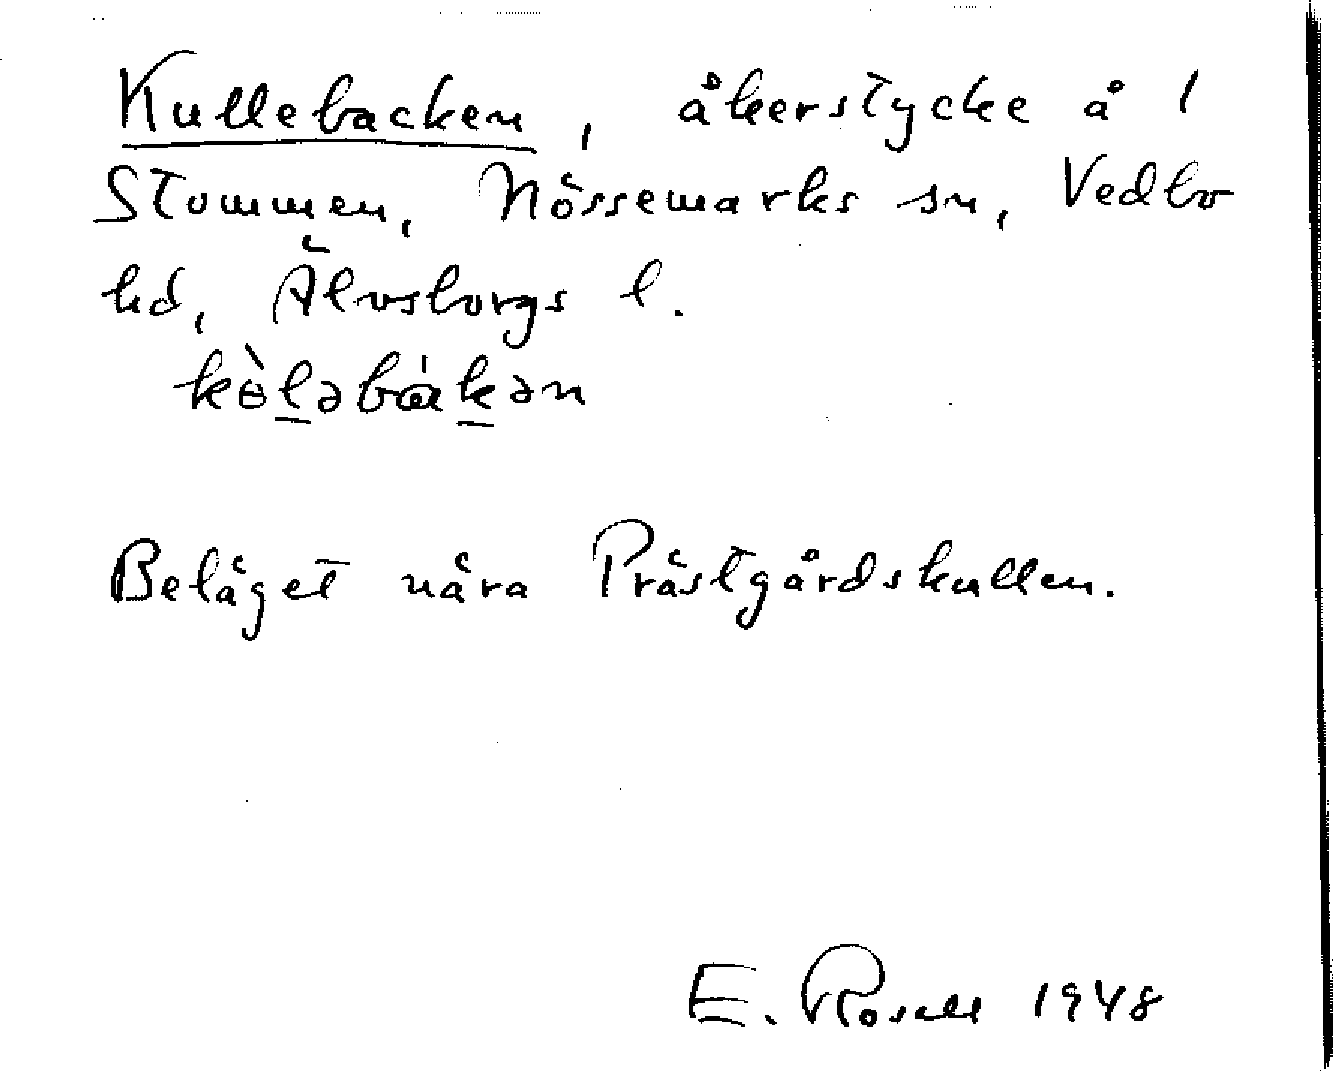 Kullebacken, åkerstycke å 1
Stommen, Nössemarks sn, Vedbo
hd, Älvsborgs l.
kɵ̀ləbákən
Beläget nära Prästgårdskullen.
E. Rosell 1948